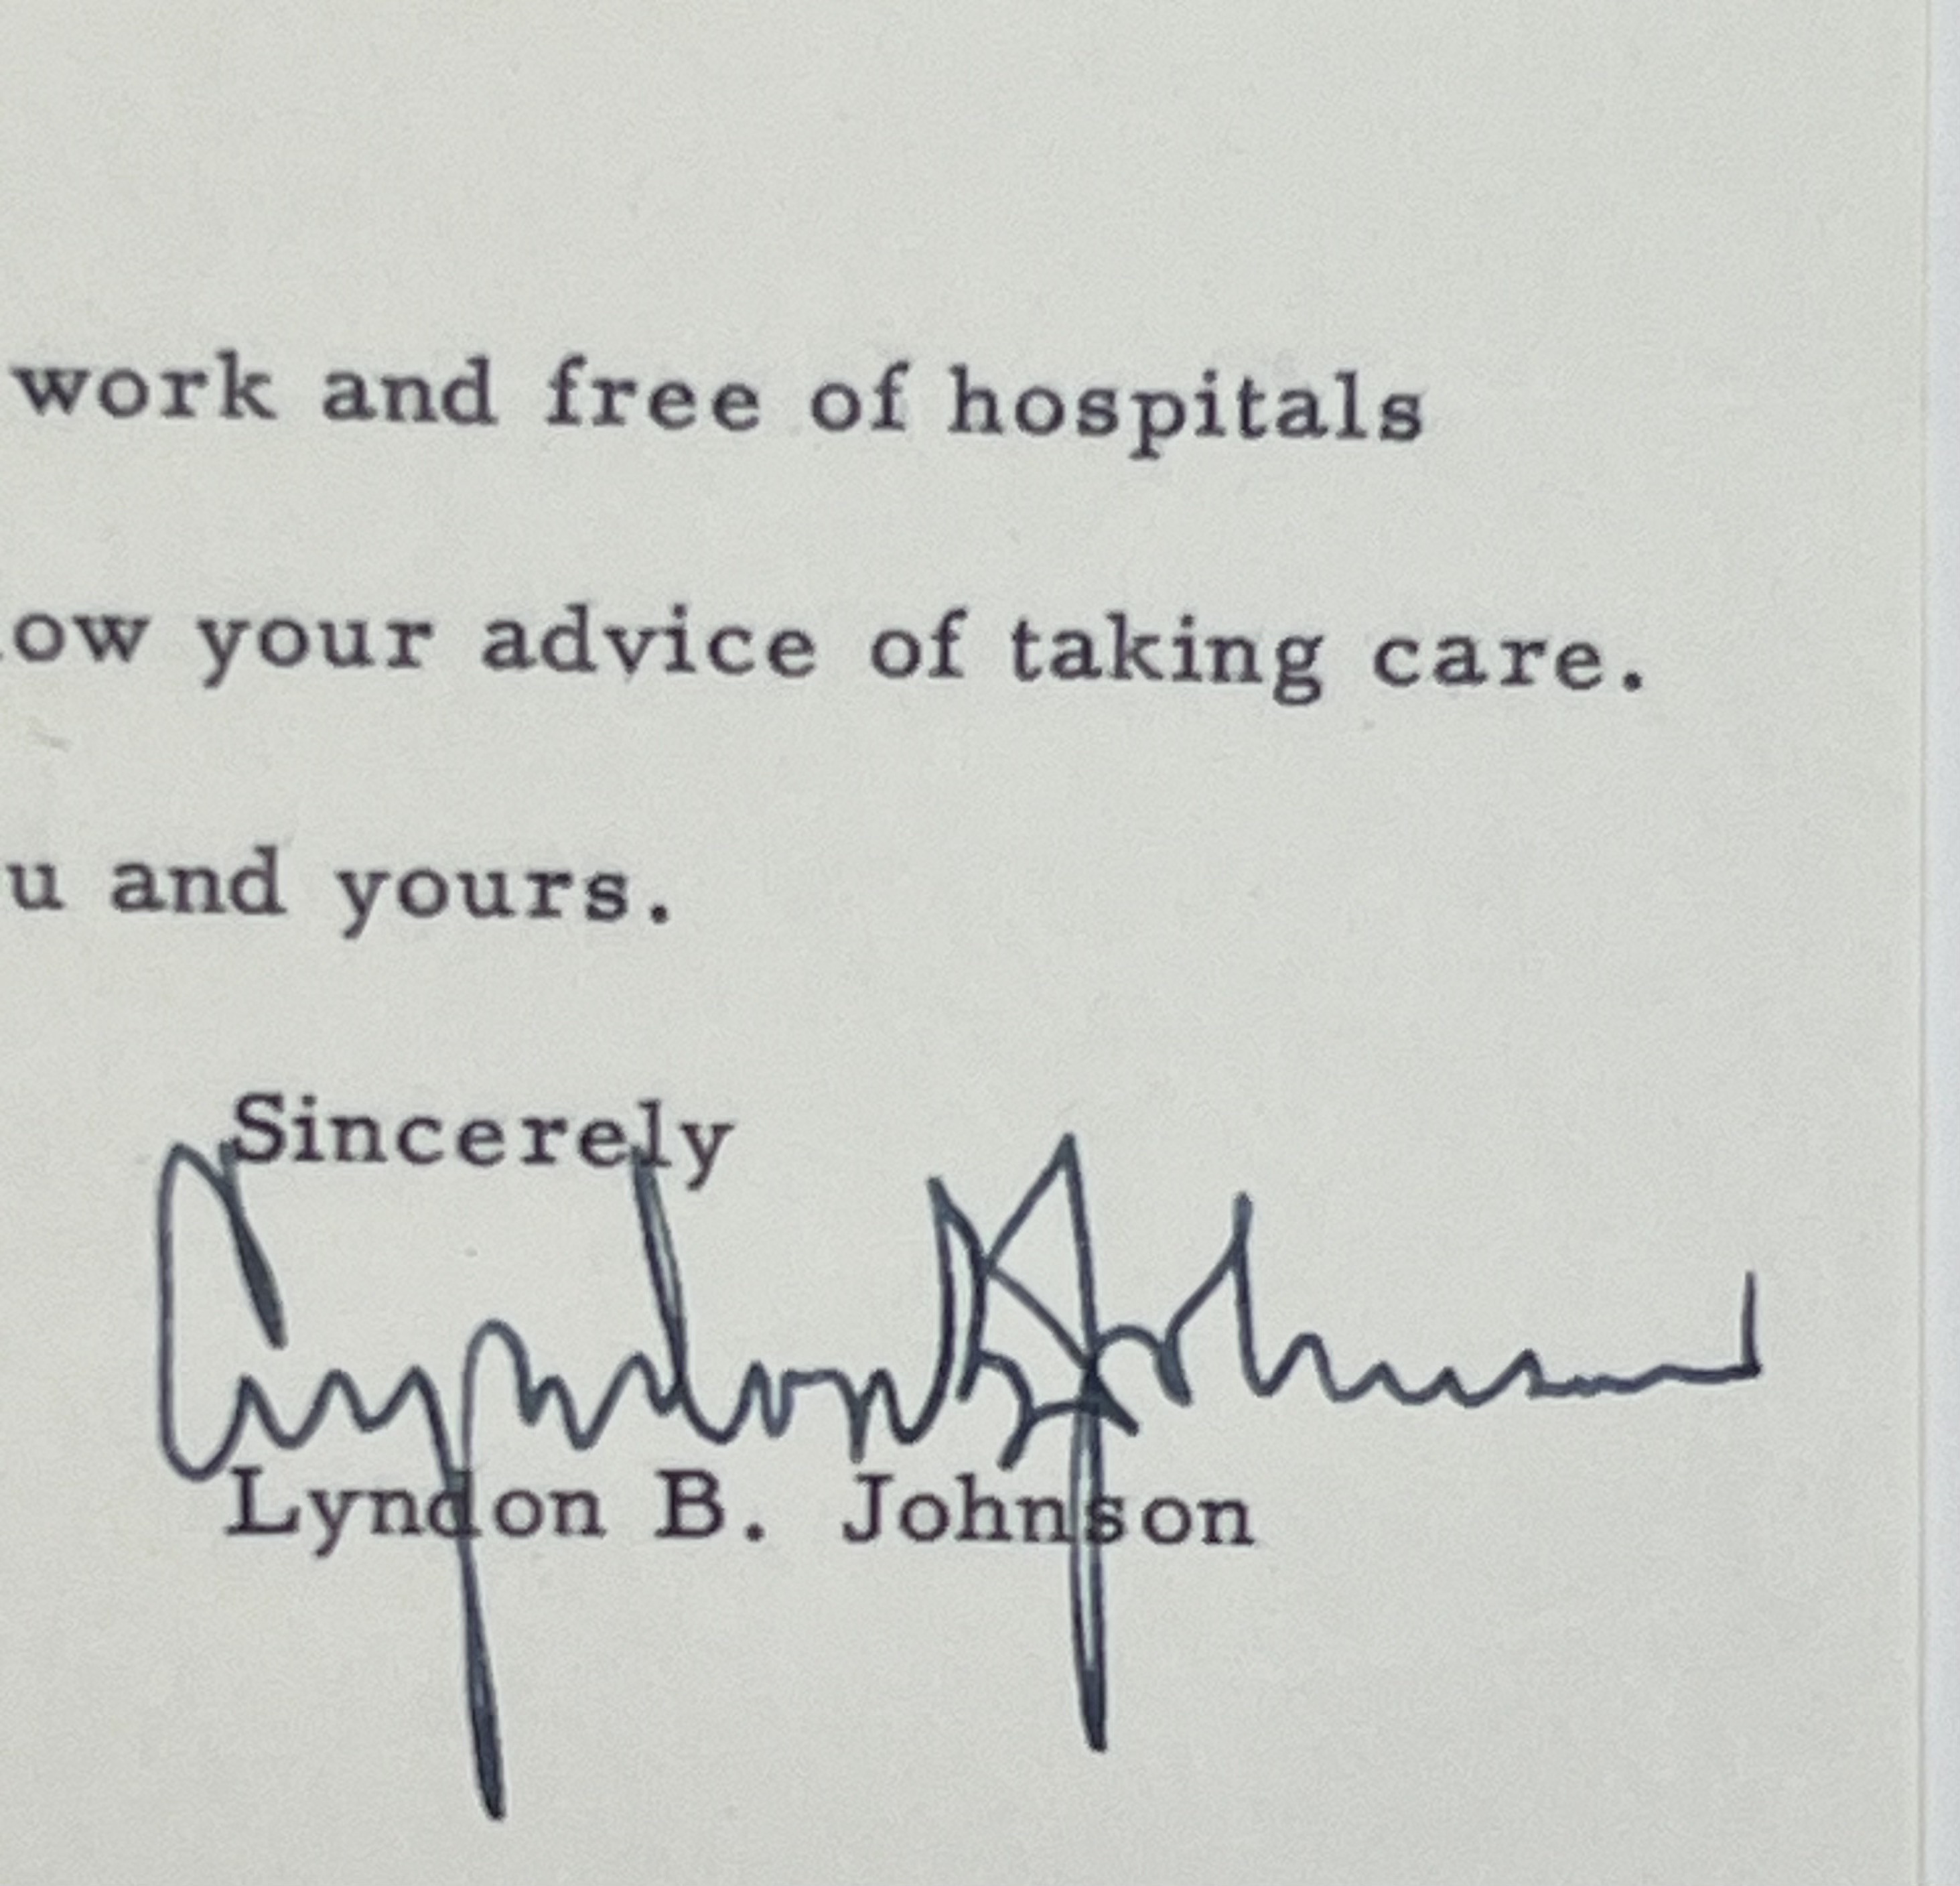 work and free of hospitals
low your advice of taking care.
u and yours.
Sincerely
Lyndon B Johnson
Lyndon B. Johnson